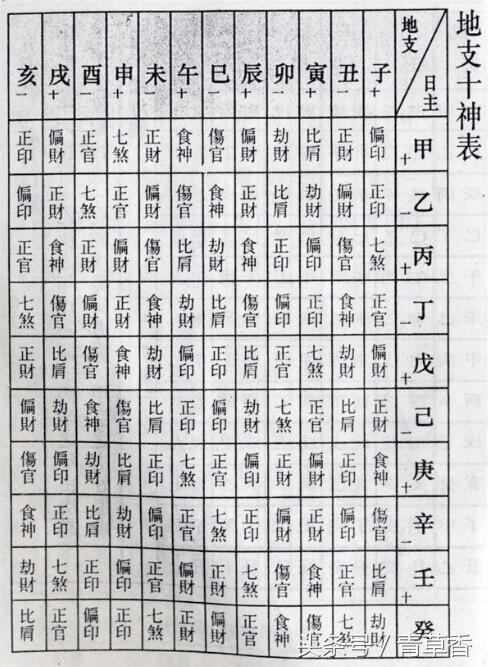 地支十神表
地支 日主
子+ 丑一 寅+ 卯一 辰+ 巳一 午+ 未一 申+ 酉一 戌+ 亥一
甲+ 偏印 正財 比肩 劫財 偏財 傷官 食神 正財 七煞 正官 偏財 正印
乙一 正印 偏財 劫財 比肩 正財 食神 傷官 偏財 正官 七煞 正財 偏印
丙+ 七煞 傷官 偏印 正印 食神 劫財 比肩 傷官 偏財 正財 食神 正官
丁一 正官 食神 正印 偏印 傷官 比肩 劫財 食神 正財 偏財 傷官 七煞
戊+ 偏財 劫財 七煞 正官 比肩 正印 偏印 劫財 食神 傷官 比肩 正財
己一 正財 比肩 正官 七煞 劫財 偏印 正印 比肩 傷官 食神 劫財 偏財
庚+ 食神 正印 偏財 正財 偏印 正官 七煞 正印 比肩 劫財 偏印 傷官
辛一 傷官 偏印 正財 偏財 正印 七煞 正官 偏印 劫財 比肩 正印 食神
壬+ 比肩 正官 食神 傷官 七煞 正財 偏財 正官 偏印 正印 七煞 劫財
癸 劫財 七煞 傷官 食神 正官 偏財 正財 七煞 正印 偏印 正官 比肩
头条号/青草香